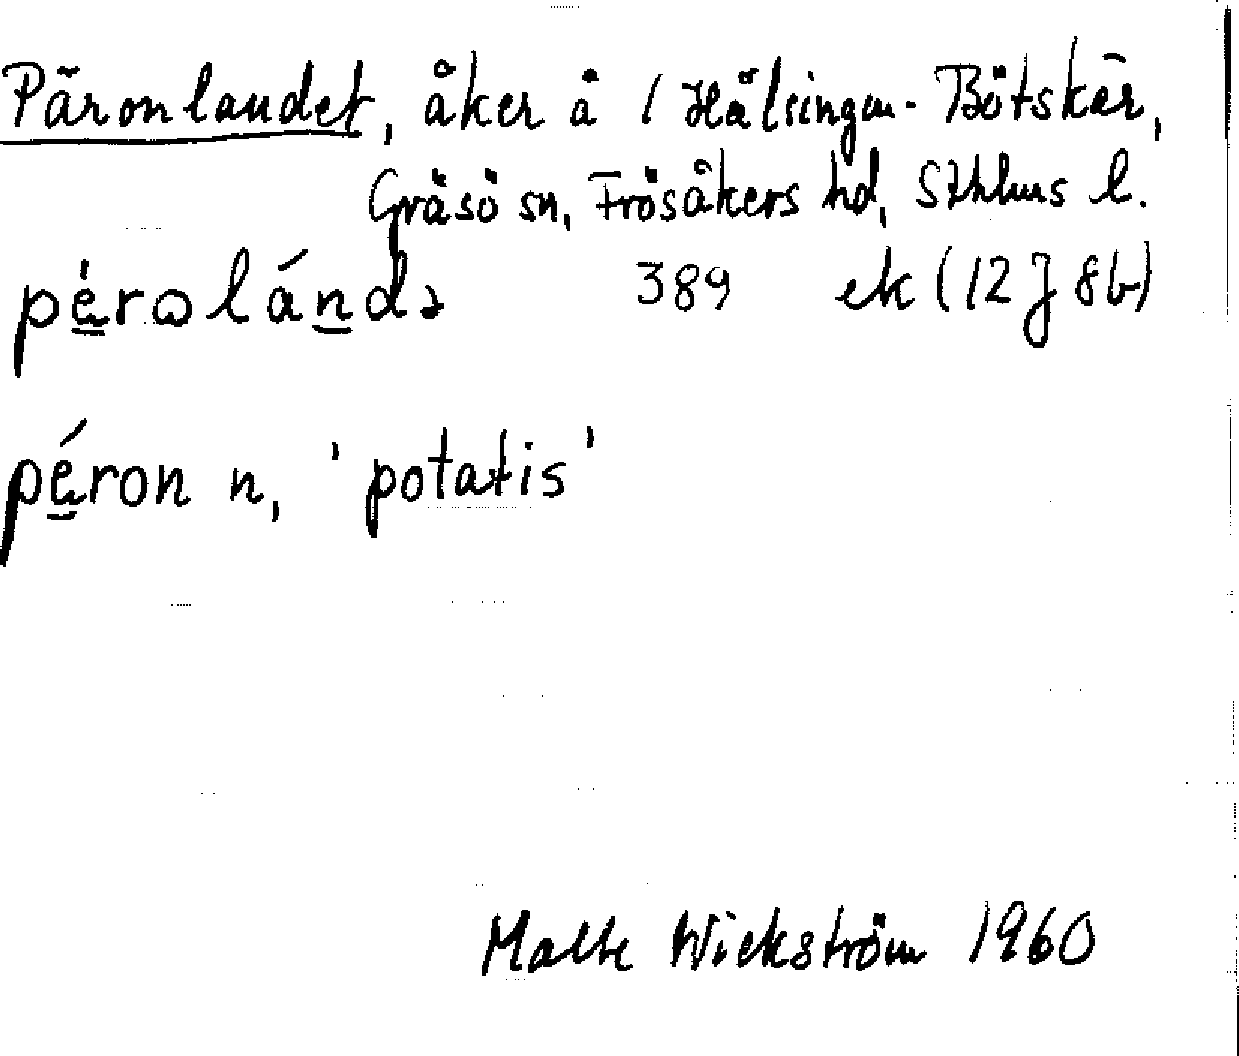 Päronlandet, åker å / Hälsingen-Bötskär,
Gräsö sn, Frösåkers hd, Sthlms l.
pérωlándə 389 ek (12 J 8b)
péron n, 'potatis'
Malte Wickström 1960